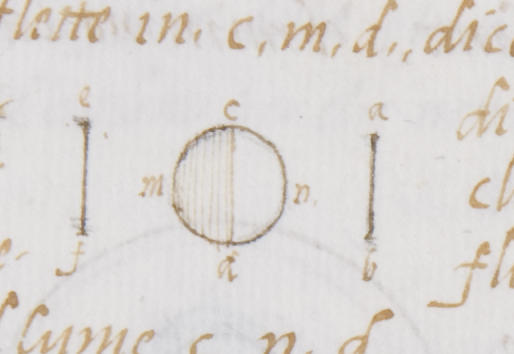 flette in. c, m, d,, dic
e c a
di
m n.
cl
f d b
fl
lume c, n, d